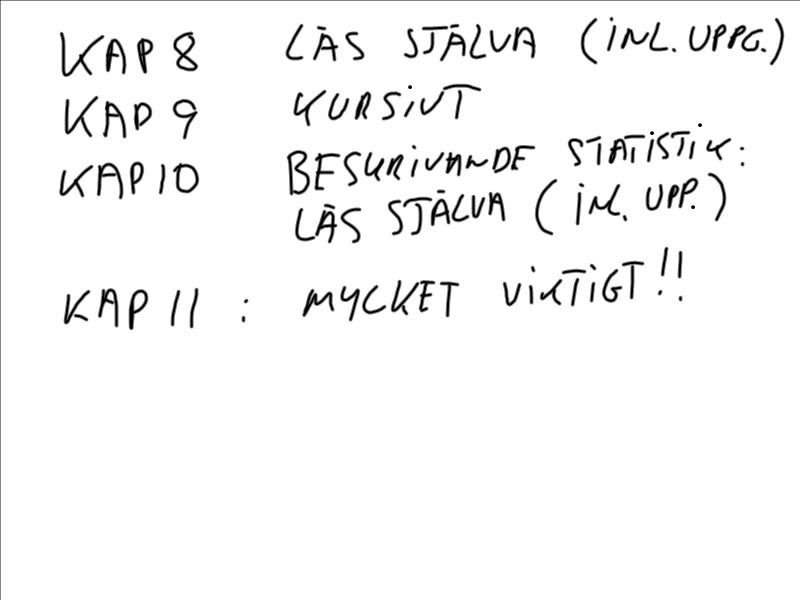 KAP 8 LÄS SJÄLVA (INL. UPPG.)
KAP 9 KURSIVT
KAP 10 BESKRIVANDE STATISTIK:
LÄS SJÄLVA (INL. UPP.)
KAP 11 : MYCKET VIKTIGT!!